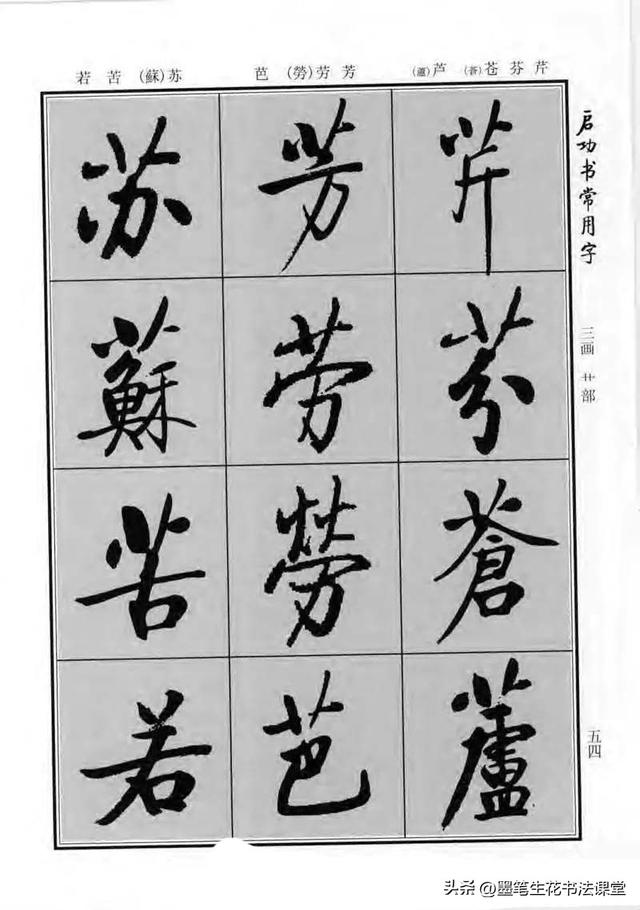 启功书常用字
三画 艹部
五四
芹芬苍(蒼)芦(蘆)
芳劳(勞)芭
苏(蘇)苦若
芹
芬
蒼
蘆
芳
劳
勞
芭
苏
蘇
苦
若
头条 @墨笔生花书法课堂